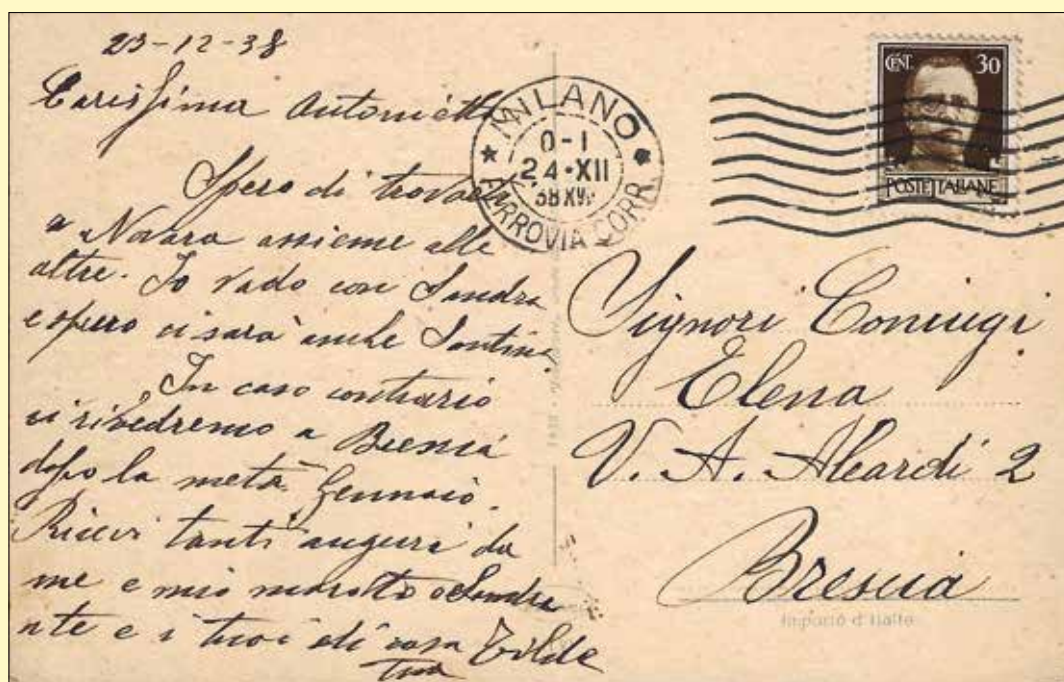 23-12-38
Carissima Antonietta
Spero di trovarti
a Novara assieme alle
altre. Io vado con Sandra
e spero ci sarà anche Santina.
In caso contrario
ci rivedremo a Brescia
dopo la metà Gennaio.
Ricevi tanti auguri da
me e mio marito e Sandra
a te e i tuoi di casa
tua Tilde
MILANO
0-1
24•XII
38XVII
FERROVIA CORR.
CENT. 30
POSTE ITALIANE
Signori Coniugi
Elena
V. A. Aleardi 2
Brescia